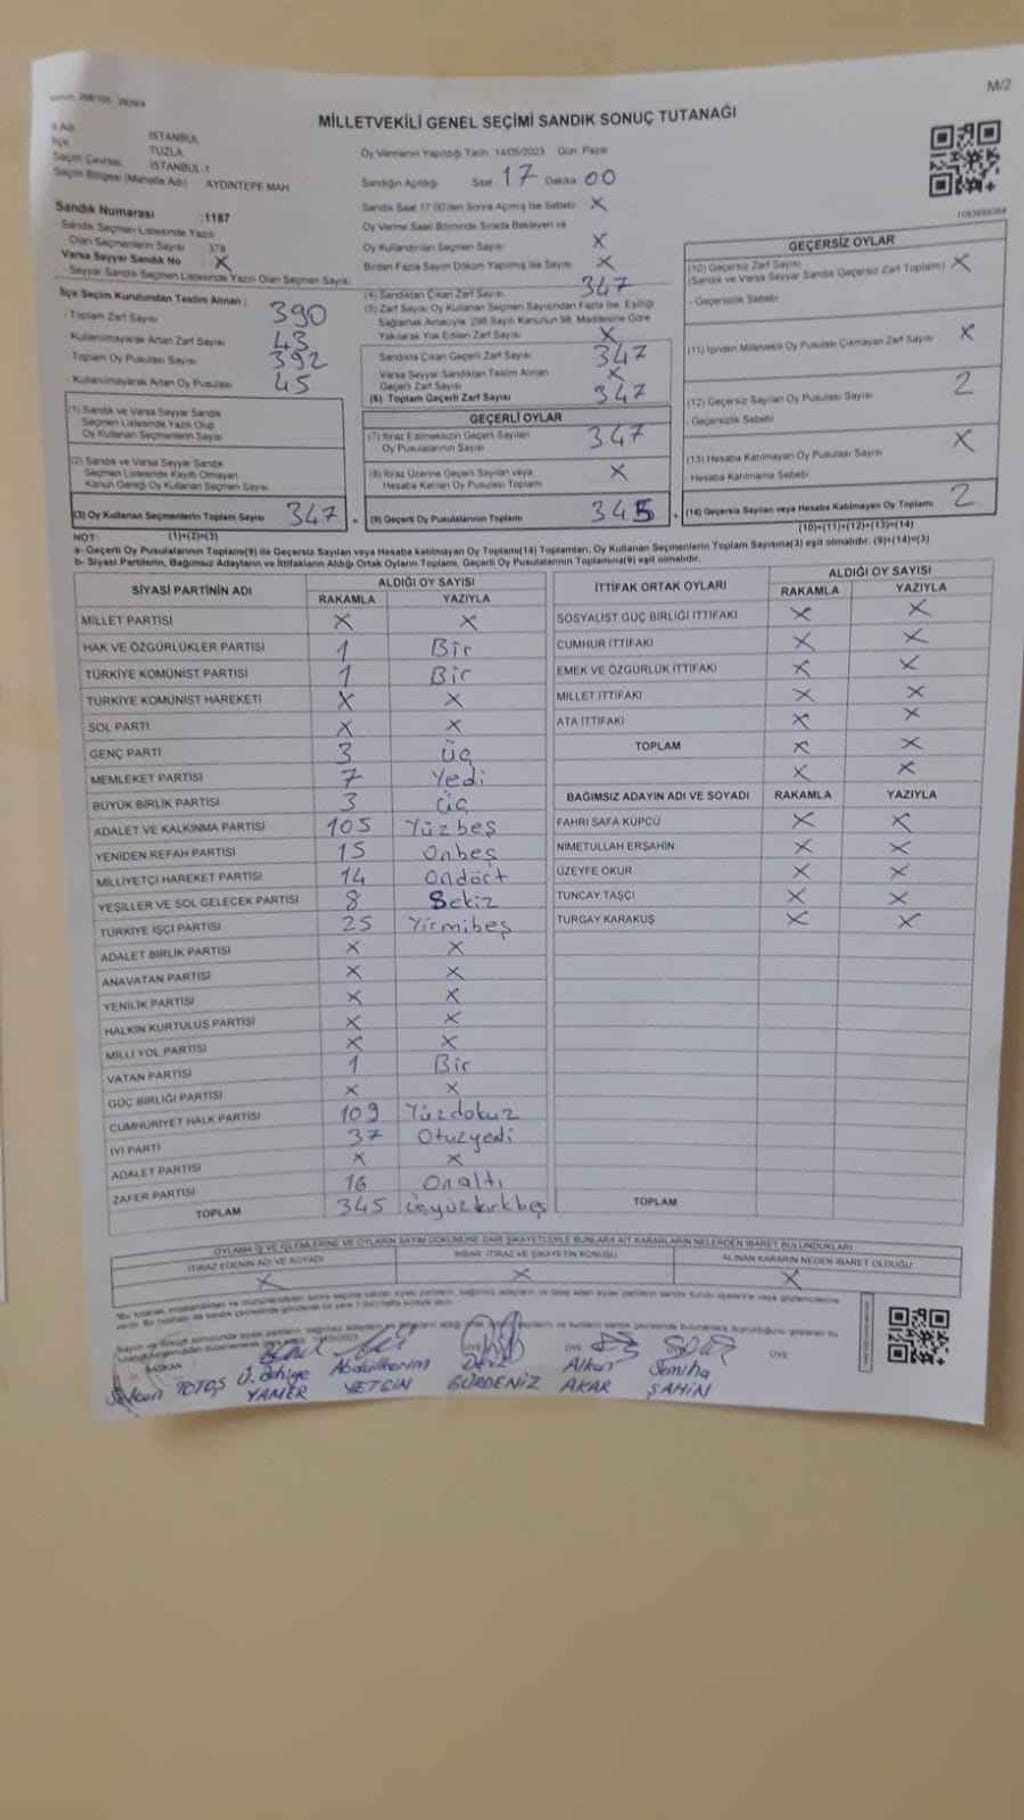 M/2
MİLLETVEKİLİ GENEL SEÇİMİ SANDIK SONUÇ TUTANAĞI
İSTANBUL
TUZLA
İSTANBUL-1
Seçim Bölgesi (Mahalle Adı) AYDINTEPE MAH
Sandık Numarası :1187
Sandık Seçmen Listesinde Yazılı
Olan Seçmenlerin Sayısı 378
Varsa Seyyar Sandık No X
Seyyar Sandık Seçmen Listesinde Yazılı Olan Seçmen Sayısı
Oy Vermenin Yapıldığı Tarih: 14/05/2023 Gün: Pazar
Sandığın Açıldığı Saat 17 Dakika 00
Sandık Saat 17:00'den Sonra Açılmış İse Sebebi X
Oy Verme Saati Bitiminde Sırada Bekleyen ve
Oy Kullandırılan Seçmen Sayısı X
Birden Fazla Sayım Döküm Yapılmış İse Sayısı X
İlçe Seçim Kurulundan Teslim Alınan:
Toplam Zarf Sayısı 390
Kullanılmayarak Artan Zarf Sayısı 43
Toplam Oy Pusulası Sayısı 392
Kullanılmayarak Artan Oy Pusulası 45
(1) Sandık ve Varsa Seyyar Sandık
Seçmen Listesinde Yazılı Olup
Oy Kullanan Seçmenlerin Sayısı
(2) Sandık ve Varsa Seyyar Sandık
Seçmen Listesinde Kayıtlı Olmayan
Kanun Gereği Oy Kullanan Seçmen Sayısı
(3) Oy Kullanan Seçmenlerin Toplam Sayısı 347
(1)+(2)=(3)
(4) Sandıktan Çıkan Zarf Sayısı 347
(5) Zarf Sayısı Oy Kullanan Seçmen Sayısından Fazla İse, Eşitliği
Sağlamak Amacıyla, 298 Sayılı Kanunun 98. Maddesine Göre
Yakılarak Yok Edilen Zarf Sayısı X
Sandıkta Çıkan Geçerli Zarf Sayısı 347
Varsa Seyyar Sandıktan Teslim Alınan
Geçerli Zarf Sayısı X
(6) Toplam Geçerli Zarf Sayısı 347
GEÇERLİ OYLAR
(7) İtiraz Edilmeksizin Geçerli Sayılan
Oy Pusulalarının Sayısı 347
(8) İtiraz Üzerine Geçerli Sayılan veya
Hesaba Katılan Oy Pusulası Toplamı X
(9) Geçerli Oy Pusulalarının Toplamı 345
GEÇERSİZ OYLAR
(10) Geçersiz Zarf Sayısı X
(Sandık ve Varsa Seyyar Sandık Geçersiz Zarf Toplamı)
Geçersizlik Sebebi
(11) İçinden Milletvekili Oy Pusulası Çıkmayan Zarf Sayısı X
(12) Geçersiz Sayılan Oy Pusulası Sayısı 2
Geçersizlik Sebebi
(13) Hesaba Katılmayan Oy Pusulası Sayısı X
Hesaba Katılmama Sebebi
(14) Geçersiz Sayılan veya Hesaba Katılmayan Oy Toplamı 2
(10)+(11)+(12)+(13)=(14)
NOT:
a- Geçerli Oy Pusulalarının Toplamı(9) ile Geçersiz Sayılan veya Hesaba katılmayan Oy Toplamı(14) Toplamları, Oy Kullanan Seçmenlerin Toplam Sayısına(3) eşit olmalıdır. (9)+(14)=(3)
b- Siyasi Partilerin, Bağımsız Adayların ve İttifakların Aldığı Ortak Oyların Toplamı, Geçerli Oy Pusulalarının Toplamına(9) eşit olmalıdır.
SİYASİ PARTİNİN ADI ALDIĞI OY SAYISI
RAKAMLA YAZIYLA
MİLLET PARTİSİ X X
HAK VE ÖZGÜRLÜKLER PARTİSİ 1 Bir
TÜRKİYE KOMÜNİST PARTİSİ 1 Bir
TÜRKİYE KOMÜNİST HAREKETİ X X
SOL PARTİ X X
GENÇ PARTİ 3 üç
MEMLEKET PARTİSİ 7 Yedi
BÜYÜK BİRLİK PARTİSİ 3 üç
ADALET VE KALKINMA PARTİSİ 105 Yüzbeş
YENİDEN REFAH PARTİSİ 15 Onbeş
MİLLİYETÇİ HAREKET PARTİSİ 14 Ondört
YEŞİLLER VE SOL GELECEK PARTİSİ 8 Sekiz
TÜRKİYE İŞÇİ PARTİSİ 25 Yirmibeş
ADALET BİRLİK PARTİSİ X X
ANAVATAN PARTİSİ X X
YENİLİK PARTİSİ X X
HALKIN KURTULUŞ PARTİSİ X X
MİLLİ YOL PARTİSİ X X
VATAN PARTİSİ 1 Bir
GÜÇ BİRLİĞİ PARTİSİ X X
CUMHURİYET HALK PARTİSİ 109 Yüzdokuz
İYİ PARTİ 37 Otuzyedi
ADALET PARTİSİ X X
ZAFER PARTİSİ 16 Onaltı
TOPLAM 345 üçyüzkırkbeş
İTTİFAK ORTAK OYLARI ALDIĞI OY SAYISI
RAKAMLA YAZIYLA
SOSYALİST GÜÇ BİRLİĞİ İTTİFAKI X X
CUMHUR İTTİFAKI X X
EMEK VE ÖZGÜRLÜK İTTİFAKI X X
MİLLET İTTİFAKI X X
ATA İTTİFAKI X X
TOPLAM X X
X X
BAĞIMSIZ ADAYIN ADI VE SOYADI RAKAMLA YAZIYLA
FAHRİ SAFA KÜPCÜ X X
NİMETULLAH ERŞAHİN X X
ÜZEYFE OKUR X X
TUNCAY TAŞCI X X
TURGAY KARAKUŞ X X
TOPLAM
OYLAMA İŞ VE İŞLEMLERİNE VE OYLARIN SAYIM DÖKÜMÜNE DAİR ŞİKAYETLERLE BUNLARA AİT KARARLARIN NELERDEN İBARET BULUNDUKLARI
İTİRAZ EDENİN ADI VE SOYADI İHBAR, İTİRAZ VE ŞİKAYETİN KONUSU ALINAN KARARIN NEDEN İBARET OLDUĞU
X X X
BAŞKAN ÜYE ÜYE ÜYE
Abdulkerim Deniz Alkan Semiha
YAMER YETGİN GÜRDENİZ AKAR ŞAHİN